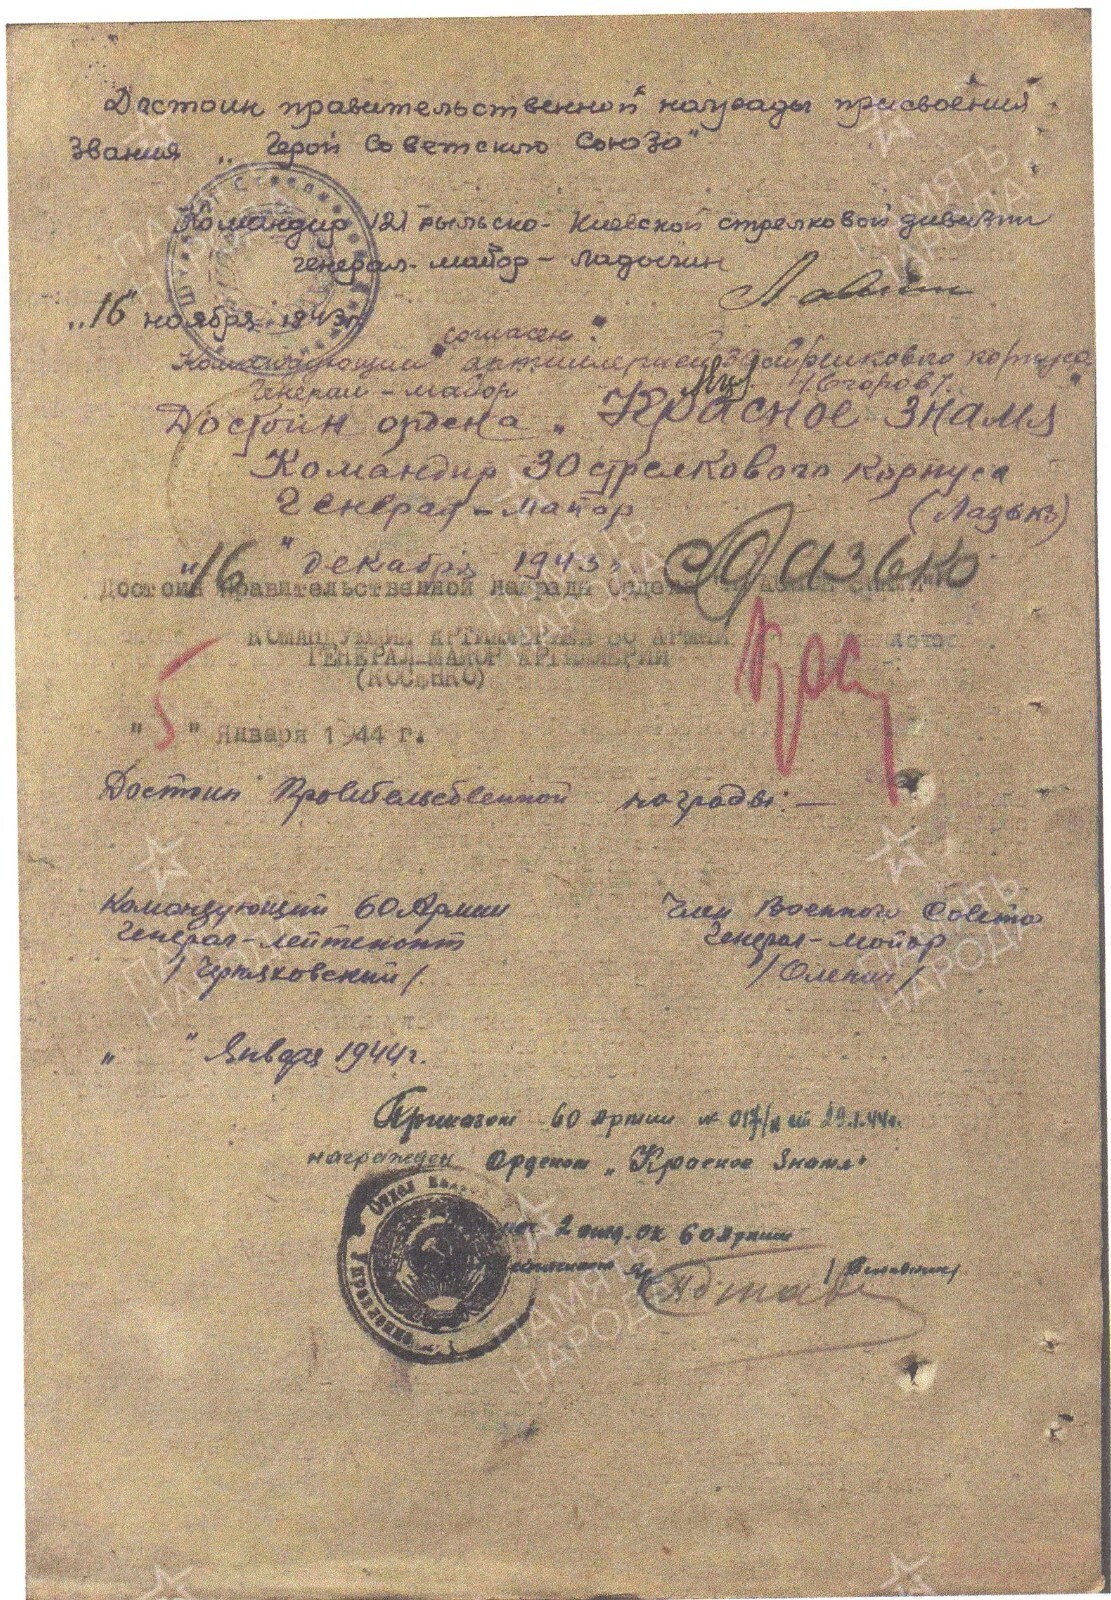 Достоин правительственной награды присвоения
звания „Герой Советского Союза"
Командир 121 Рыльско-Киевской стрелковой дивизии
генерал-майор - Ладыгин
„16" ноября 1943г
Согласен:
Командующий артиллерией 30 стрелкового корпуса
Генерал-майор /Егоров/.
Достоин ордена „Красное Знамя"
Командир 30 стрелкового корпуса
Генерал-майор (Лазько)
"16" декабря 1943г
Достоин правительственной награды
КОМАНДУЮЩИЙ АРТИЛЛЕРИЕЙ 60 АРМИИ
ГЕНЕРАЛ-МАЙОР АРТИЛЛЕРИИ
(КОСЕНКО)
Крас
"5" Января 1944 г.
Достоин Правительственной награды: —
Командующий 60 Армии Член Военного Совета
Генерал-лейтенант Генерал-майор
/Черняховский/. /Оленин/
" " Января 1944г.
Приказом 60 Армии № 017/н от 29.1.44г.
награжден Орденом „Красное Знамя"
нач. 2 отд. ОК 60 Армии
ПАМЯТЬ НАРОДА